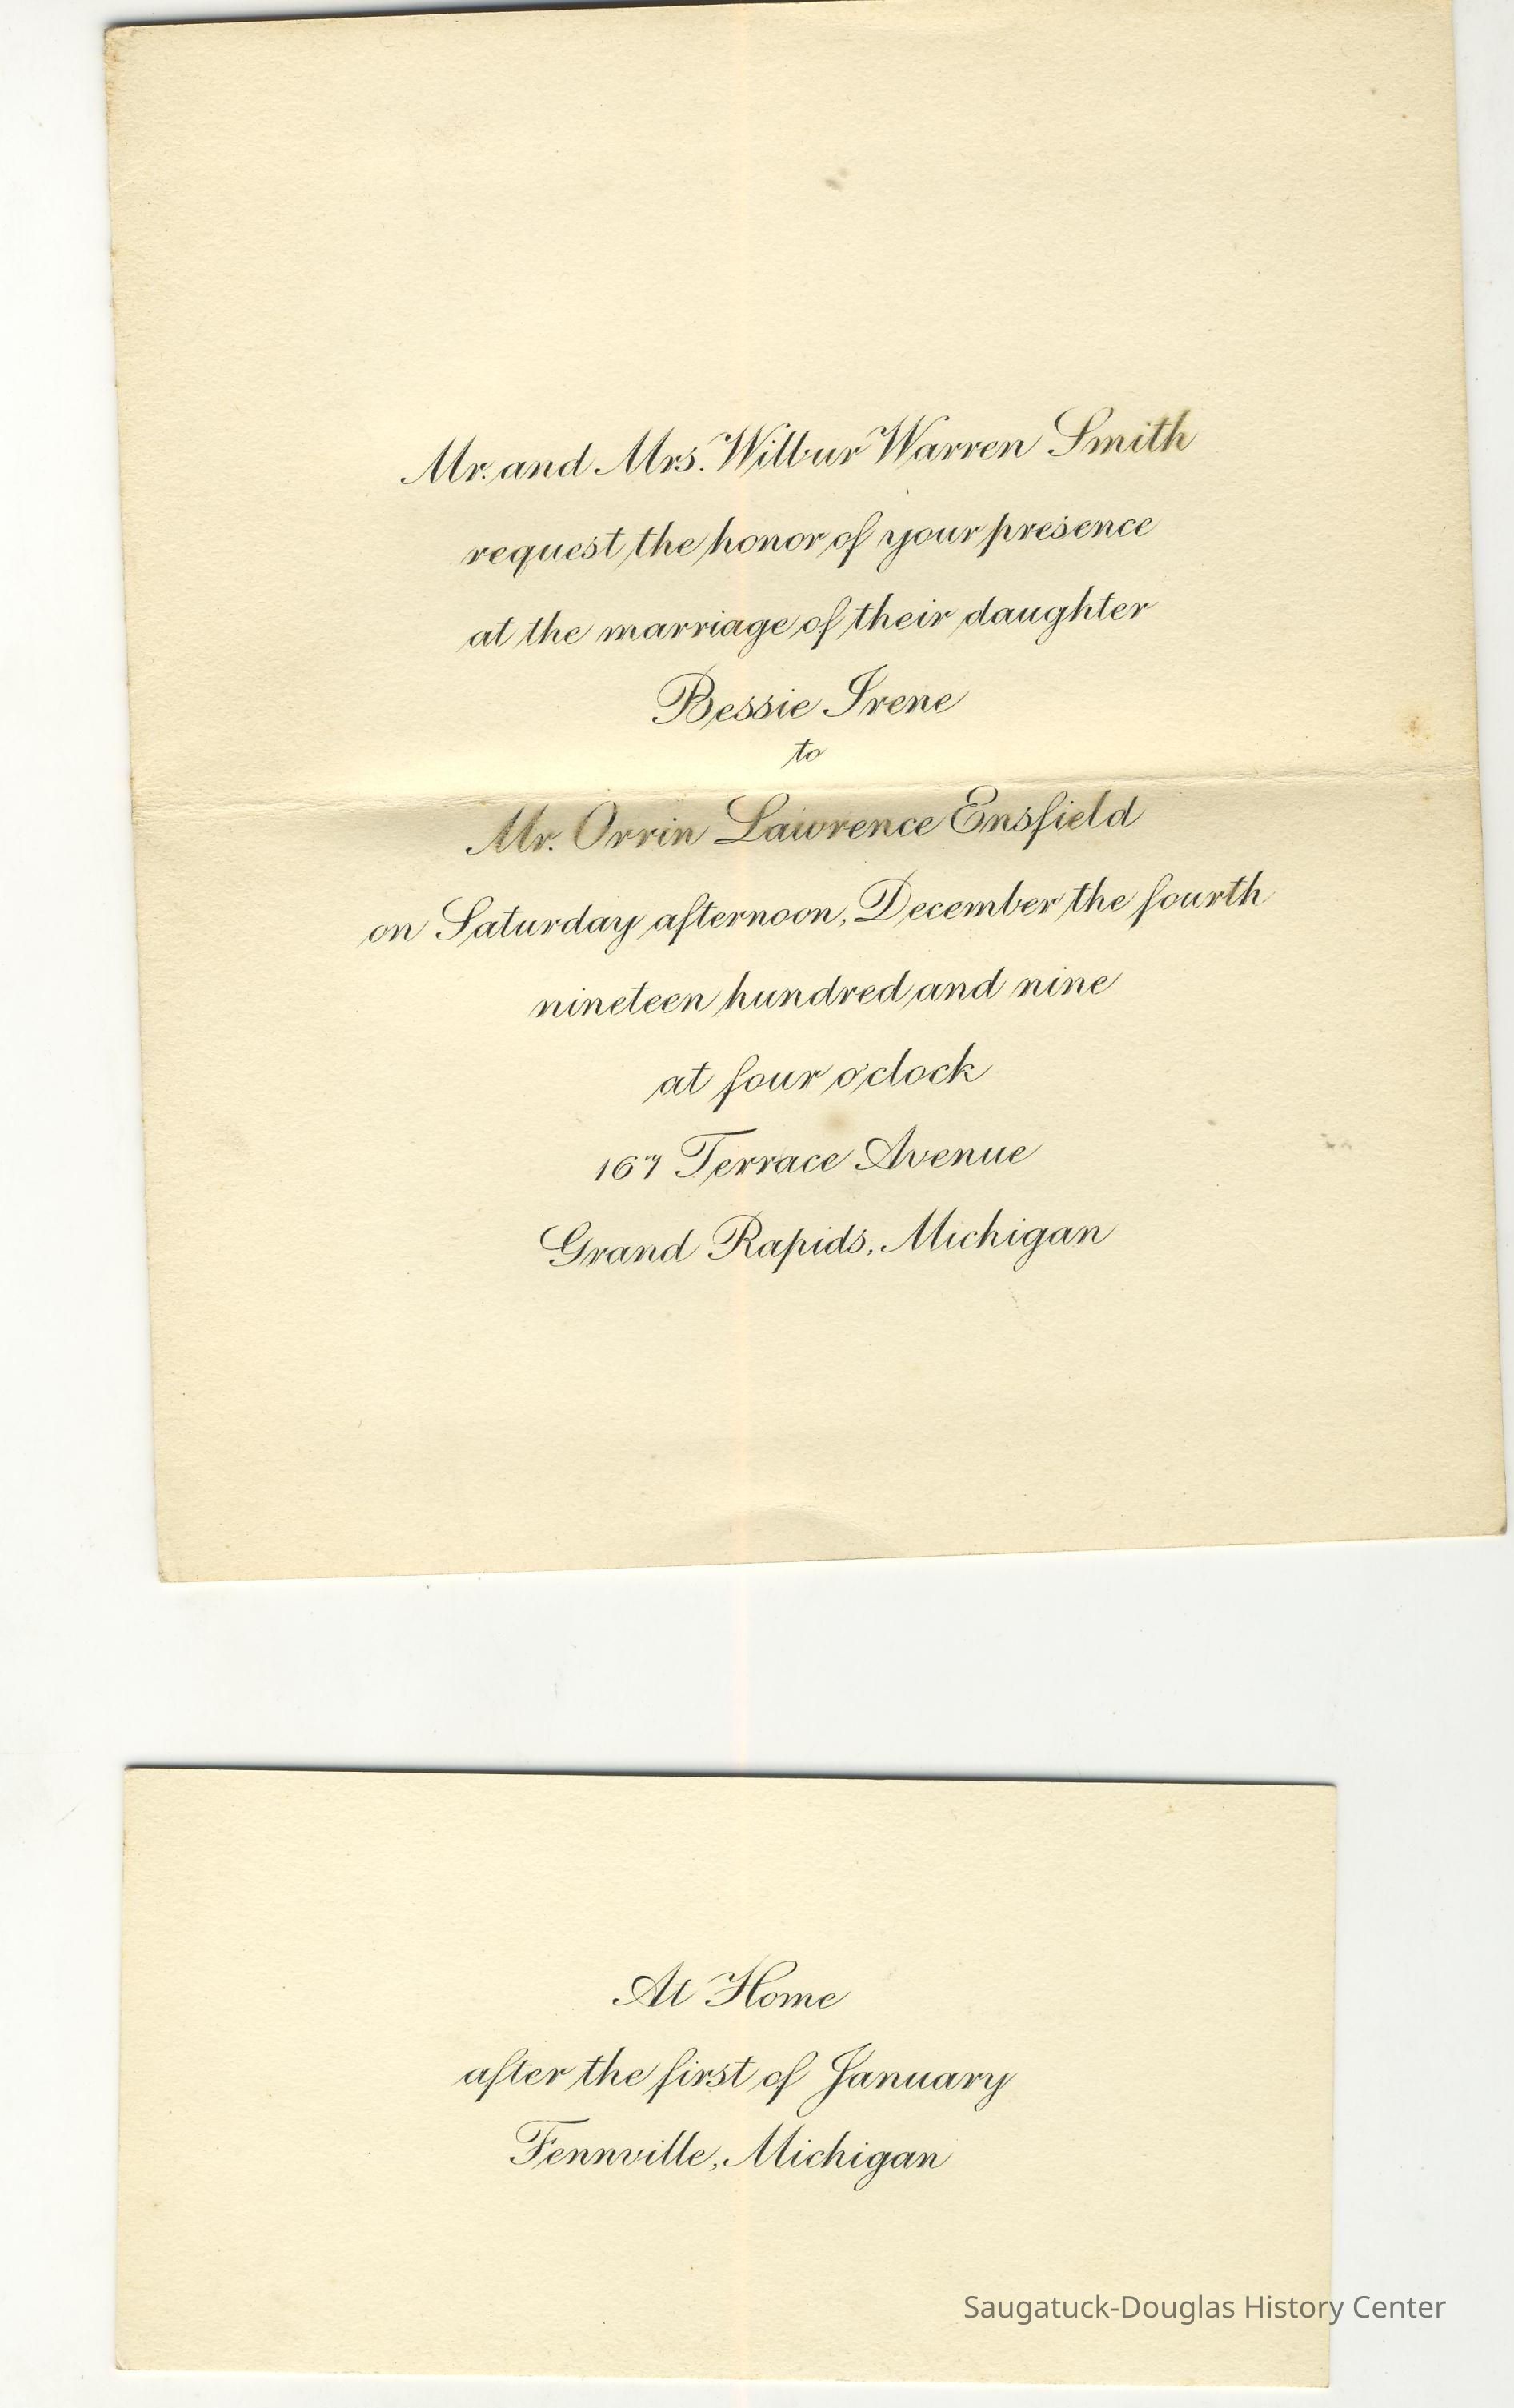 Mr. and Mrs. Wilbur Warren Smith
request the honor of your presence
at the marriage of their daughter
Bessie Irene
to
Mr. Orrin Lawrence Ensfield
on Saturday afternoon, December the fourth
nineteen hundred and nine
at four o'clock
167 Terrace Avenue
Grand Rapids, Michigan
At Home
after the first of January
Fennville, Michigan
Saugatuck-Douglas History Center